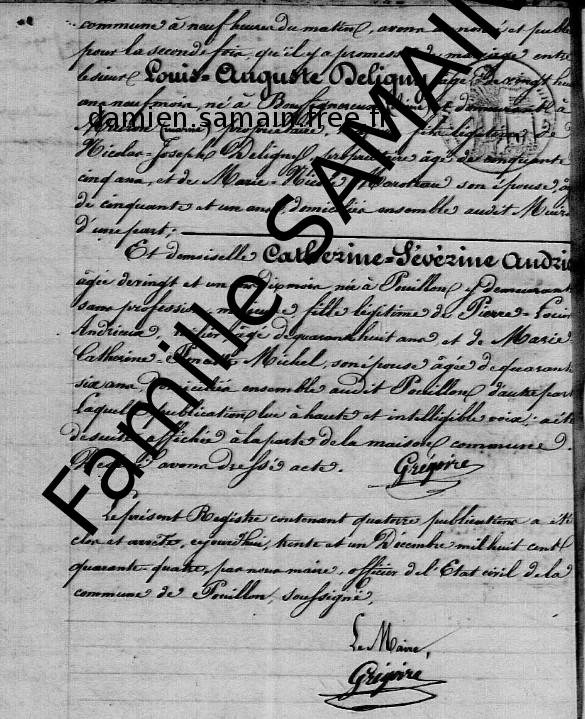 commune à neuf heures du matin, avons et publié
pour la seconde fois, qu'il y a promesse de mariage entre
le sieur Louis-Auguste Deligny âgé de vingt huit
ans neuf mois, né à à
damien.samain.free.fr
(marne) propriétaire, fils légitime de
Nicolas-Joseph Deligny, propriétaire âgé de cinquante
cinq ans, et de Marie-Nicole son épouse, âgée
de cinquante et un ans, domiciliés ensemble audit
d'une part;
Et demoiselle Catherine-Séverine Andrieux
âgée de vingt et un ans dix mois née à Pouillon y demeurant
sans profession, fille légitime de Pierre-Louis
Andrieux, âgé de quarante huit ans et de Marie
Catherine Michel, son épouse âgée de quarante
six ans domiciliés ensemble audit Pouillon d'autre part
Laquelle publication lue à haute et intelligible voix, a été
de suite affichée à la porte de la maison commune.
avons dressé acte. Grégoire
Le présent Registre contenant quatorze publications a été
clos et arrêté, cejourd'hui, trente et un Décembre mil huit cent
quarante-quatre, par nous maire, officier de l'Etat civil de la
commune de Pouillon, soussigné,
Le Maire,
Grégoire
Famille SAMAIN